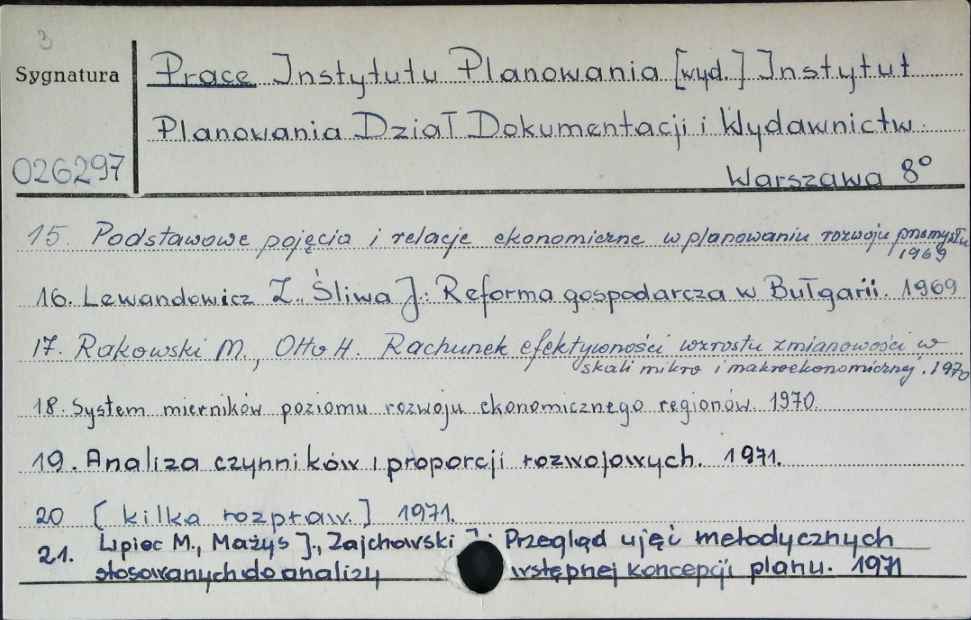 3
Sygnatura
026297
Prace Instytutu Planowania [wyd.] Instytut
Planowania Dział Dokumentacji i Wydawnictw.
Warszawa 8°
15. Podstawowe pojęcia i relacje ekonomiczne w planowaniu rozwoju przemysłu
1969
16. Lewandowicz Z., Śliwa J.: Reforma gospodarcza w Bułgarii. 1969
17. Rakowski M., Otto H. Rachunek efektywności wzrostu zmianowości w
skali mikro i makroekonomicznej. 1970
18. System mierników poziomu rozwoju ekonomicznego regionów. 1970.
19. Analiza czynników i proporcji rozwojowych. 1971.
20 [kilka rozpraw.] 1971.
21. Lipiec M., Mażys J., Zajchowski J.: Przegląd ujęć metodycznych
stosowanych do analizy wstępnej koncepcji planu. 1971